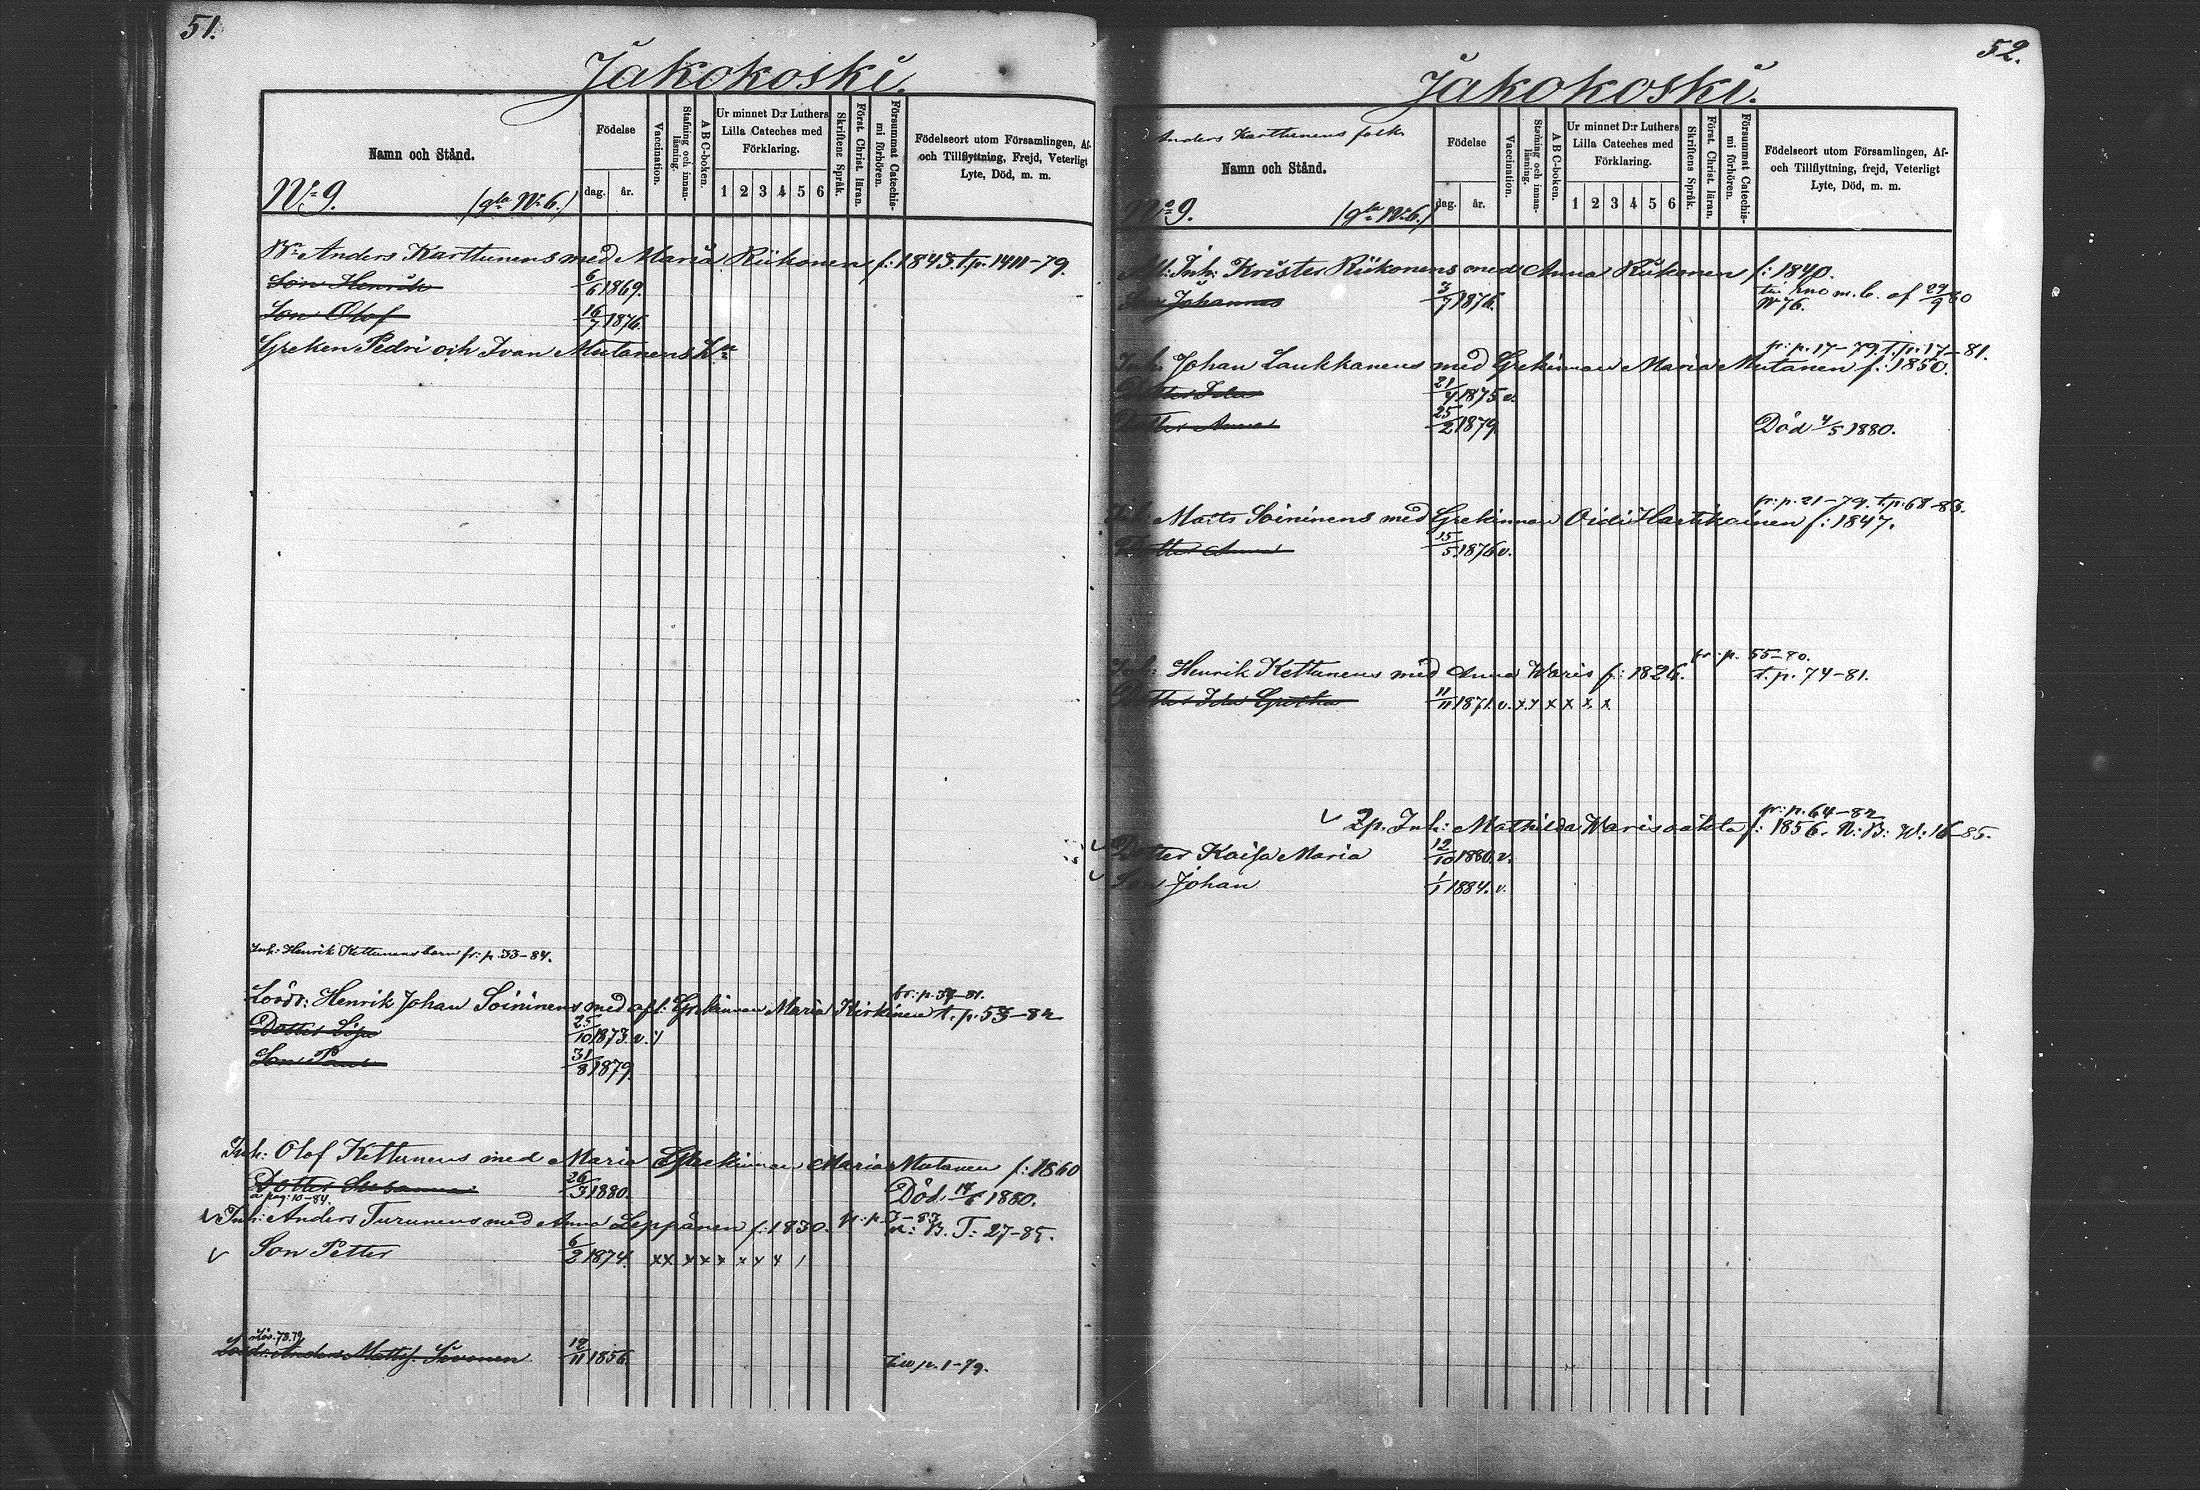 51.
Jakokoski.
Namn och Stånd.
Födelse
dag. år.
Vaccination.
Stafning och innan-läsning.
A B C-boken.
Ur minnet D:r Luthers
Lilla Cateches med
Förklaring.
1 2 3 4 5 6
Skriftens Språk.
Först. Christ. läran.
Försummat Catechis-mi förhören.
Födelseort utom Församlingen, Af-
och Tillflyttning, Frejd, Veterligt
Lyte, Död, m. m.
No 9. /gla No 6./
Bn Anders Karttunens med Maria Riikonen f: 1843. t.p. 1411-79.
Son Henrik 6/6 1869.
Son Olof 16/7 1876.
Greken Pedri och Ivan Mutanens
Inh: Henrik Kettunens barn fr: p. 33-84.
fr: p. 34-81.
Loosdr: Henrik Johan Soininens med afl: Grekinnan Maria Hirkinen t. p. 53-82
Dotter Lisa 25/10 1873. v. /
Son 31/8 1879.
Inh: Olof Kettunens med Maria Grekinnan Maria Mutanen f: 1860
Dotter Susanna 26/3 1880. Död 1880.
a pag: 10-84.
Inh: Anders Turunens med Anna Leppänen f: 1830. N: B. T: 27-85.
Son Petter 6/2 1874. x x x x x x x x /
78.79
Loosdr: Anders Mattsf. Sivonen 12/11 1856 p. 1-79.
52.
Jakokoski.
Anders Karttunens folk
Namn och Stånd.
Födelse
dag. år.
Vaccination.
Stafning och innan-läsning.
A B C-boken.
Ur minnet D:r Luthers
Lilla Cateches med
Förklaring.
1 2 3 4 5 6
Skriftens Språk.
Först. Christ. läran.
Försummat Catechis-mi förhören.
Födelseort utom Församlingen, Af-
och Tillflyttning, frejd, Veterligt
Lyte, Död, m. m.
No 9. /gla No 6./
Afl: Inh: Krister Riikonens med Anna Riikonen f: 1840.
Son Johannes 3/7 1876. m. b. af 29/9 80
No 76.
fr: p. 17-79. t. p. 17-81.
Inh: Johan Laukkanens med Grekinnan Maria Mutanen f: 1850.
Dotter Ida 21/4 1875 v.
Dotter Anna 25/2 1879 Död 4/5 1880.
fr: p. 21-79. t.p. 68-83.
Inh: Matts Soininens med Grekinnan Oidi Hartikainen f: 1847.
Dotter Anna 15/5 1876 v.
fr: p. 55-80.
Inh: Henrik Kettunens med Anna Waris f: 1826. t. p. 74-81.
Dotter Ida Gretha 11/11 1871. v. x x x x x x
fr: p. 64-82
Qp. Inh: Mathilda Waris oäkta f: 1856. N: B: W: 16-85.
Dotter Kaisa Maria 12/10 1880. v.
Son Johan 1/1 1884. v.